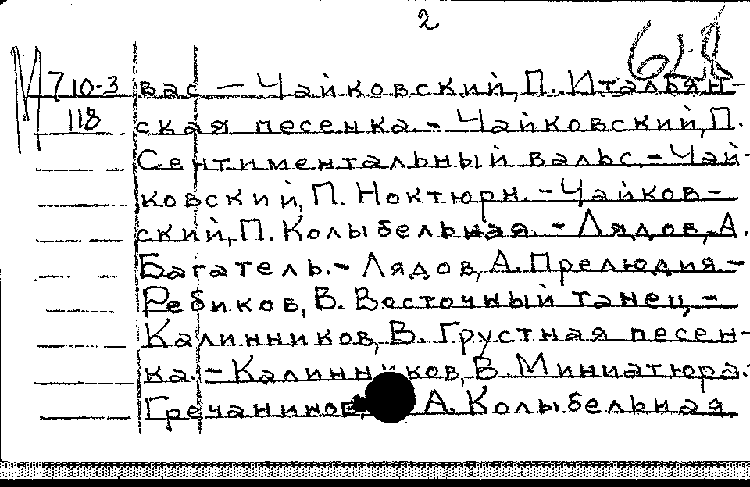 2
628
М710-3 вас – Чайковский, П. Итальян-
118 ская песенка. – Чайковский, П.
Сентиментальный вальс. – Чай-
ковский, П. Ноктюрн. – Чайков-
ский, П. Колыбельная. – Лядов, А.
Багатель. – Лядов, А. Прелюдия –
Ребиков, В. Восточный танец, –
Калинников, В. Грустная песен-
ка. – Калинников, В. Миниатюра.
Гречанинов, А. Колыбельная.